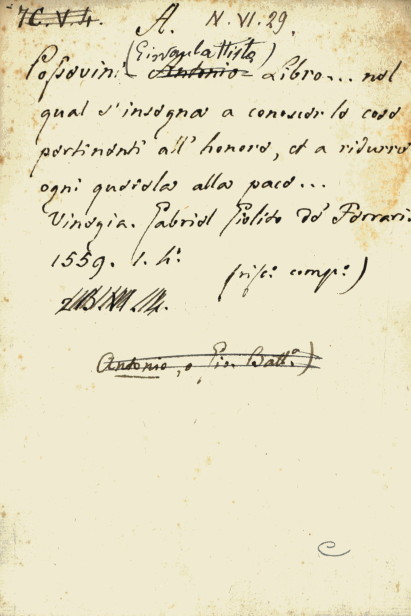 7C.V.4. A. N.VI.29.
(Giovanbattista)
Possevini Antonio Libro... nel
qual s'insegna a conoscer le cose
pertinenti all'honore, et a ridurre
ogni querela alla pace...
Vinegia. Gabriel Giolito de' Ferrari.
1559. 1. 4º.
(risc. compº)
Antonio, o Gio. Battª.)
C